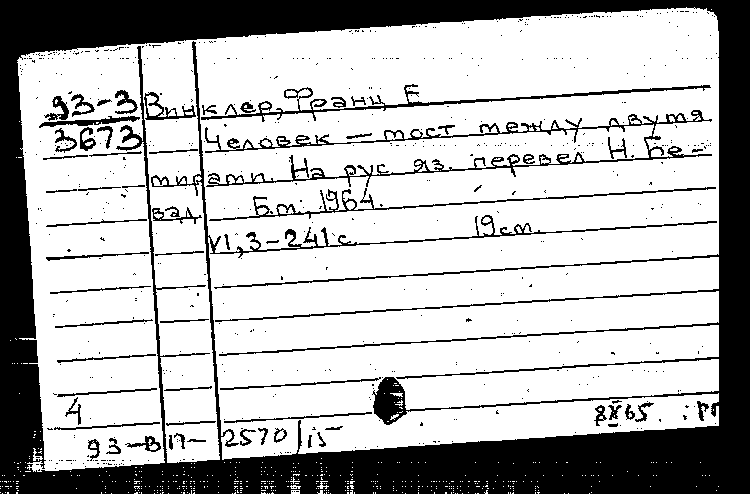 93-3 Винклер, Франц Е
3673 Человек — мост между двумя
мирами. На рус яз. перевел Н. Бе-
зад. Б.м., 1964.
VI, 3-241 с. 19 см.
4
8 XI 65.
93-В 17- 2570/15